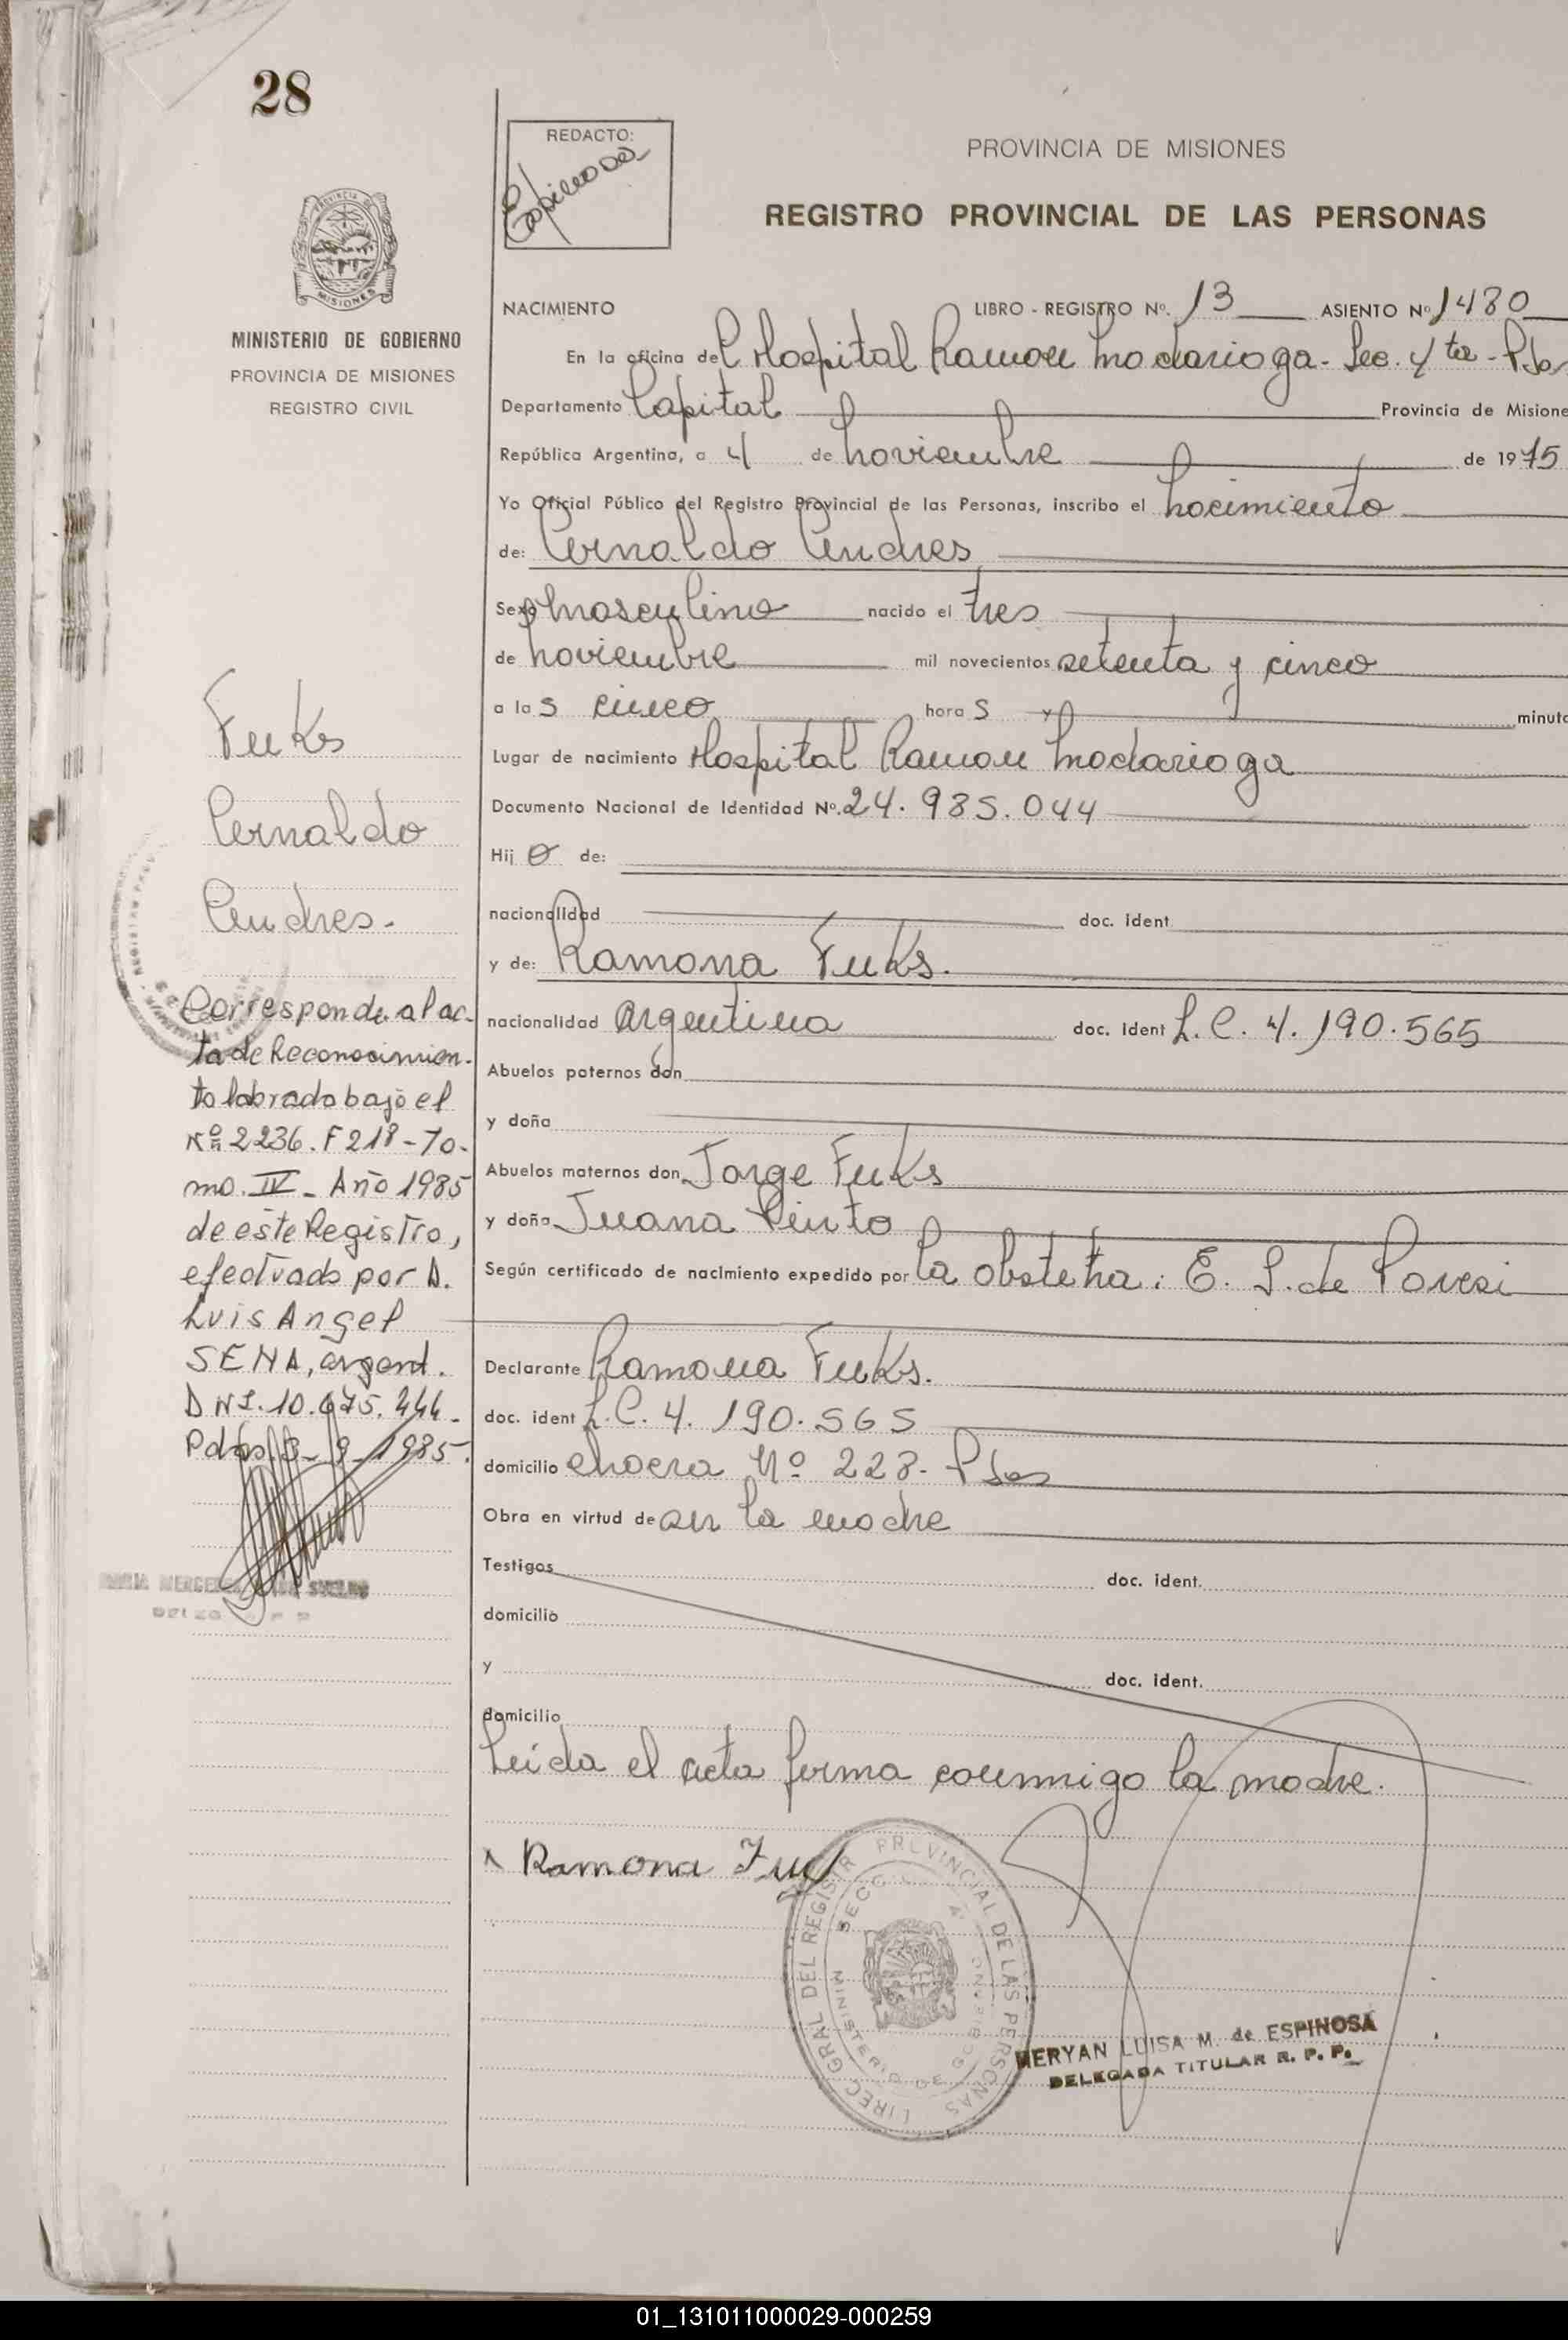 28
REDACTO:
Espinosa
PROVINCIA DE MISIONES
REGISTRO PROVINCIAL DE LAS PERSONAS
MINISTERIO DE GOBIERNO
PROVINCIA DE MISIONES
REGISTRO CIVIL
NACIMIENTO LIBRO - REGISTRO Nº. 13 ASIENTO Nº 1480
En la oficina del Hospital Ramon Madariaga - Sec. 4ta - Pdas
Departamento Capital Provincia de Misione
República Argentina, a 4 de noviembre de 1975
Yo Oficial Público del Registro Provincial de las Personas, inscribo el nacimiento
de: Arnaldo Andres
Sexo masculino nacido el tres
de noviembre mil novecientos setenta y cinco
a las cinco horas y minuto
Lugar de nacimiento Hospital Ramon Madariaga
Documento Nacional de Identidad Nº. 24.985.044
Hijo de:
nacionalidad doc. ident
y de: Ramona Fuks.
nacionalidad argentina doc. ident L.C. 4.190.565
Abuelos paternos don
y doña
Abuelos maternos don Jorge Fuks
y doña Juana Pinto
Según certificado de nacimiento expedido por la obstetra: E. L. de Povesi
Declarante Ramona Fuks.
doc. ident L.C. 4.190.565
domicilio chacra Nº 228- Pdas
Obra en virtud de ser la madre
Testigos doc. ident.
domicilio
y doc. ident.
domicilio
Leida el acta firma conmigo la madre.
Ramona Fuks
DIREC GRAL DEL REGISTR PROVINCIAL DE LAS PERSONAS
MINISTERIO DE GOBIERNO
MERYAN LUISA M. de ESPINOSA
DELEGADA TITULAR R. P. P.
Fuks
Arnaldo
Andres.
Corresponde al ac-
ta de Reconocimien-
to labrado bajo el
Nº 2236. F 218 - To-
mo IV - Año 1985
de este Registro,
efectuado por D.
Luis Angel
SENA, argent.
DNI. 10.975.444.
Pdas, 3-9-1985.
01_131011000029-000259